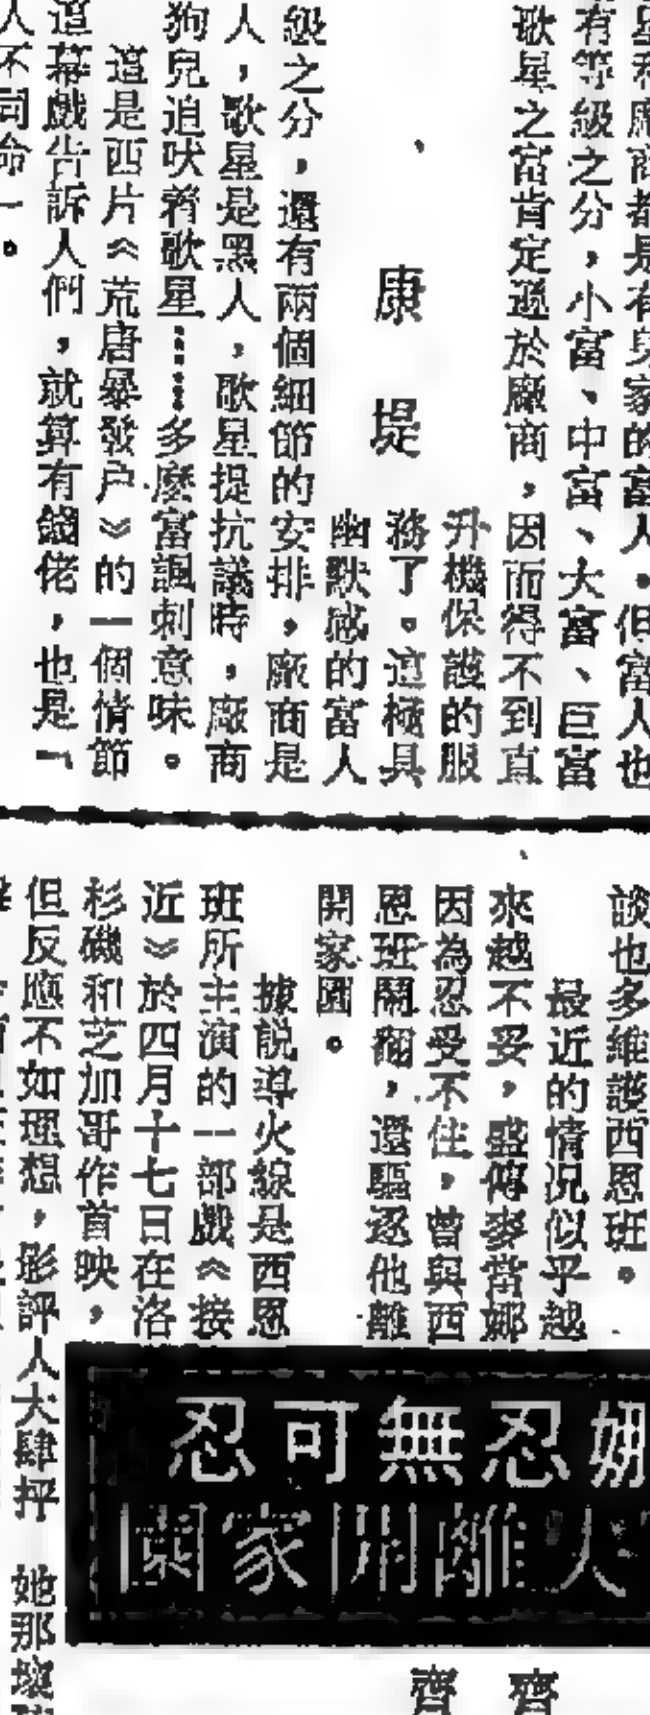 星和廠商都是有身家的富人。但富人也
有等級之分，小富、中富、大富、巨富
歌星之富肯定遜於廠商，因而得不到直
升機保護的服
務了。這極具
幽默感的富人
康堤
級之分，還有兩個細節的安排，廠商是
人，歌星是黑人，歌星提抗議時，廠商
狗兒追吠着歌星……多麼富諷刺意味。
這是西片《荒唐暴發户》的一個情節
這幕戲告訴人們，就算有錢佬，也是「
人不同命」。
談也多維護西恩班。
最近的情況似乎越
來越不妥，盛傳麥當娜
因為忍受不住，曾與西
恩班鬧翻，還驅逐他離
開家園。
據說導火線是西恩
班所主演的一部戲《接
近》於四月十七日在洛
杉磯和芝加哥作首映，
但反應不如理想，影評人大肆抨
她那壞
娜忍無可忍
人離開家園
齊齊